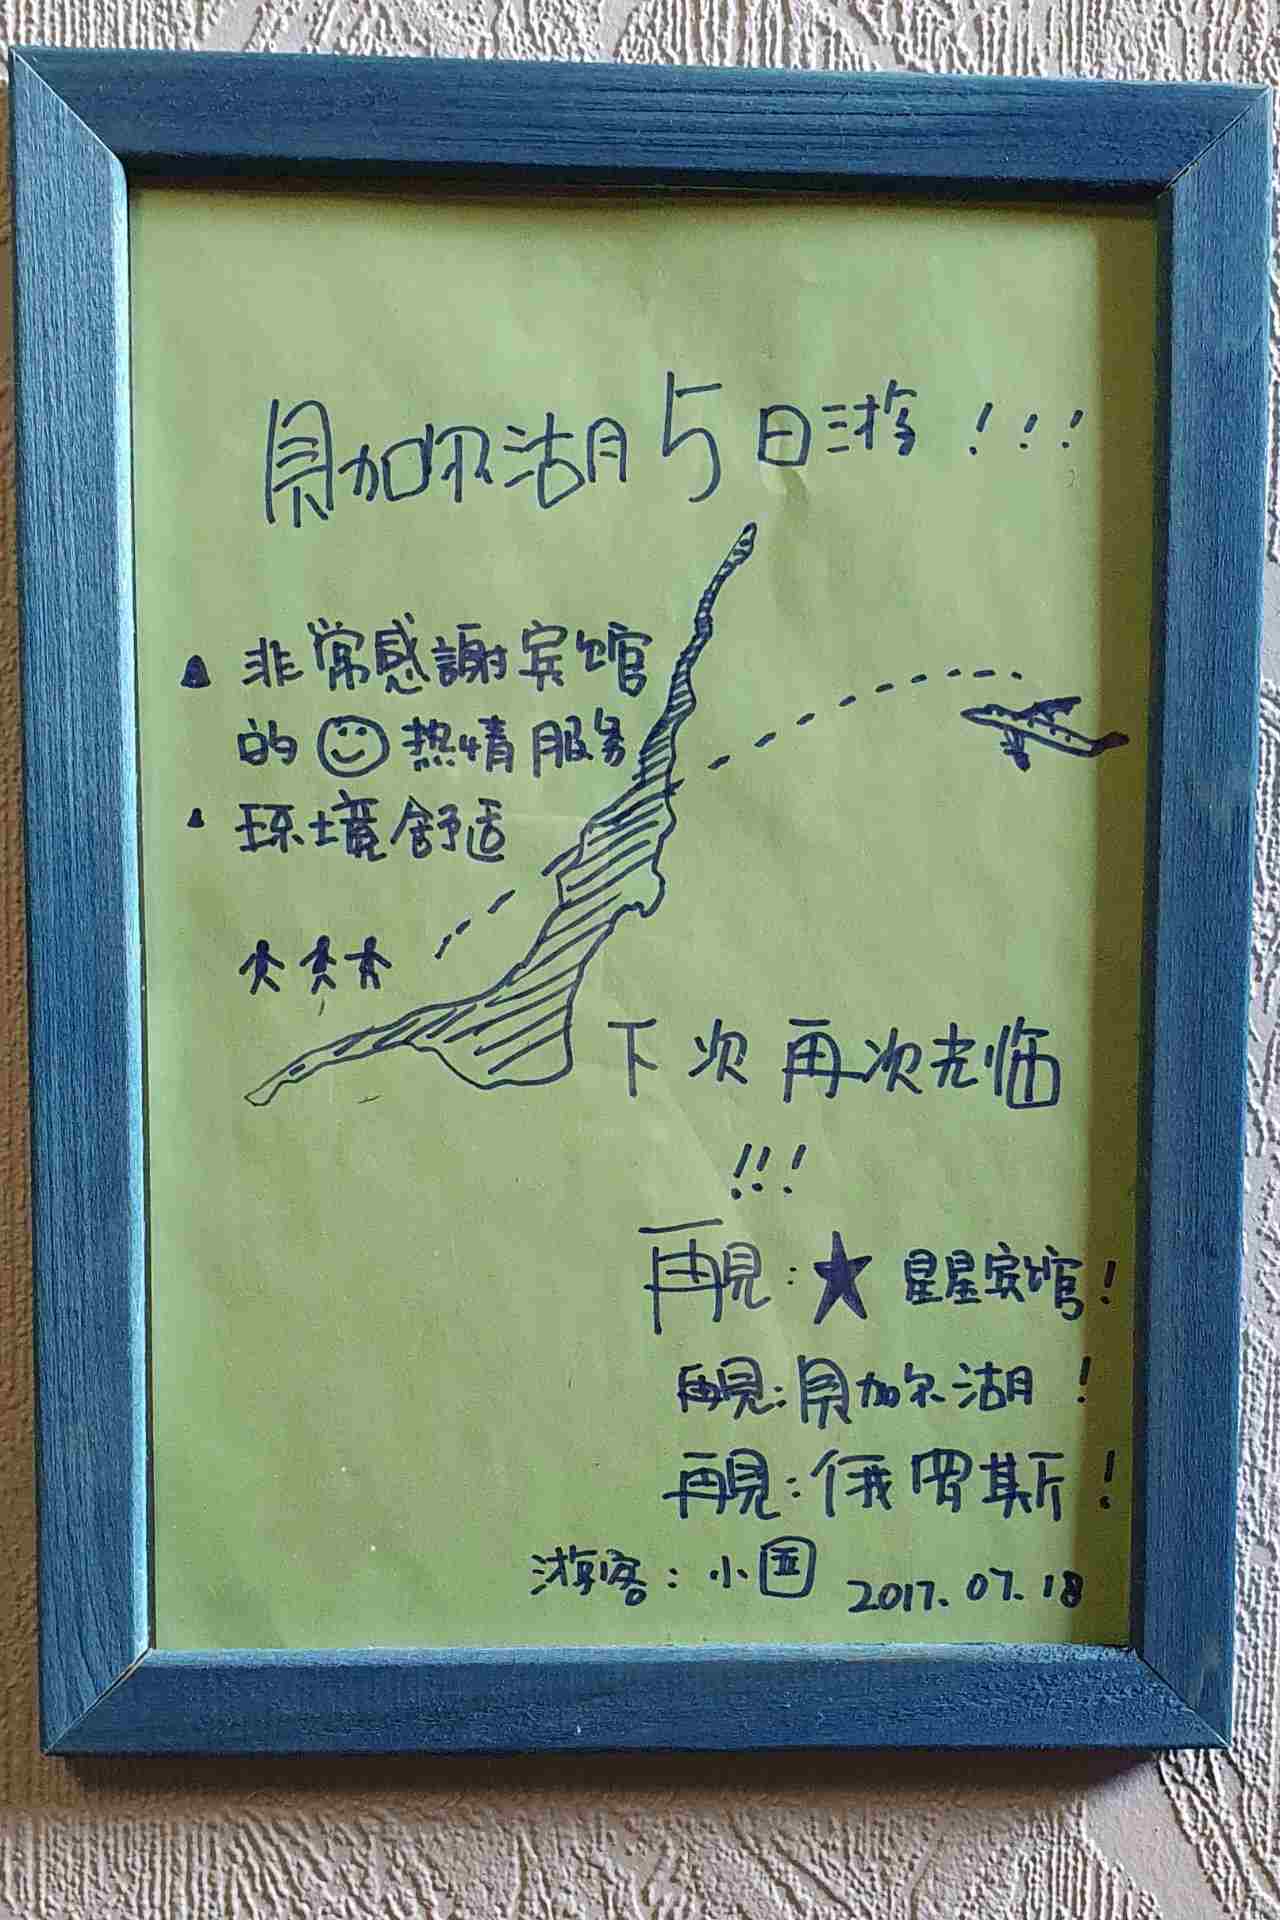 貝加尔湖5日游!!!
非常感謝宾馆
的热情服务
环境舒适
下次再次光临
!!!
再見:★星星宾馆!
再見:貝加尔湖!
再見:俄罗斯!
游客:小 2017.07.18